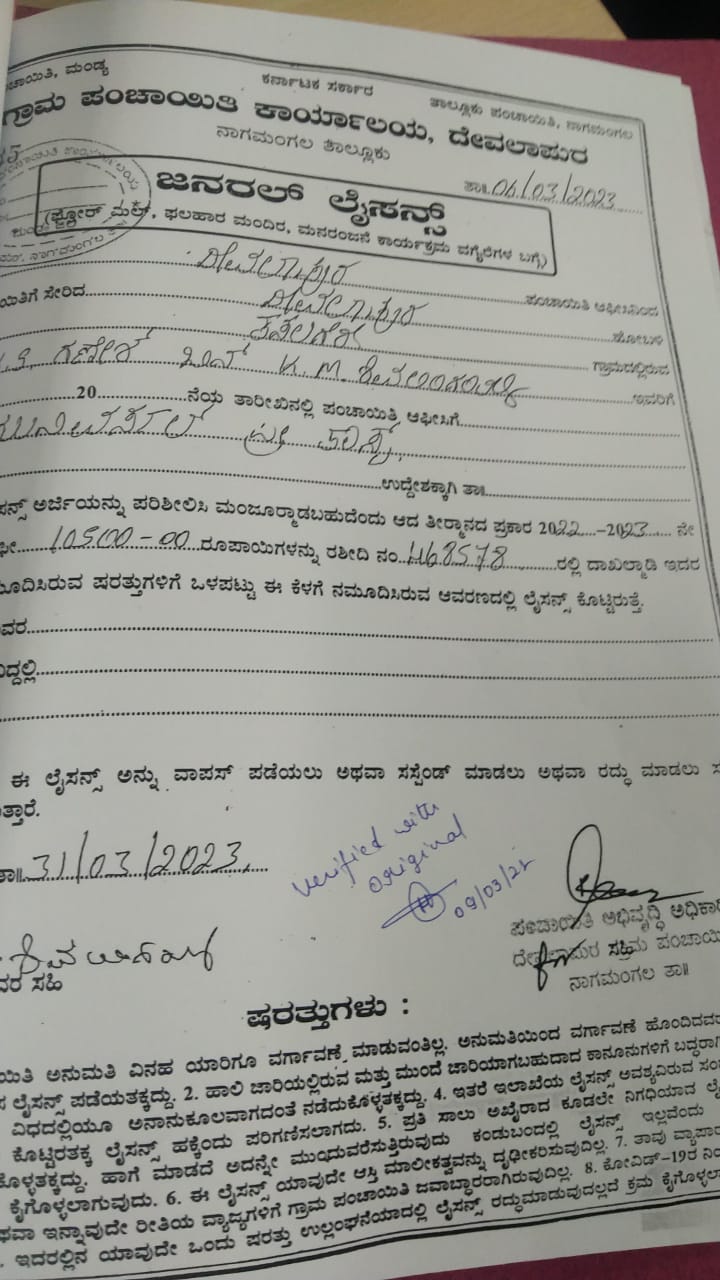 ಚಾಯಿತಿ, ಮಂಡ್ಯ ಕರ್ನಾಟಕ ಸರ್ಕಾರ ತಾಲ್ಲೂಕು ಪಂಚಾಯಿತಿ, ನಾಗಮಂಗಲ
ಗ್ರಾಮ ಪಂಚಾಯಿತಿ ಕಾರ್ಯಾಲಯ, ದೇವಲಾಪುರ
ನಾಗಮಂಗಲ ತಾಲ್ಲೂಕು
ಜನರಲ್ ಲೈಸನ್ಸ್ ತಾ॥ 06/03/2023
(ಫ್ಲೋರ್ ಮಿಲ್, ಫಲಹಾರ ಮಂದಿರ, ಮನರಂಜನೆ ಕಾರ್ಯಕ್ರಮ ವಗೈರೆಗಳ ಬಗ್ಗೆ)
ದೇವಲಾಪುರ ಪಂಚಾಯಿತಿ ಆಫೀಸಿನಿಂದ
ಯಿತಿಗೆ ಸೇರಿದ ದೇವಲಾಪುರ ಹೋಬಳಿ
ಗ್ರಾಮದಲ್ಲಿರುವ
ಗಣೇಶ್ ಬಿನ್ K.M. ಇವರಿಗೆ
20 ನೆಯ ತಾರೀಖಿನಲ್ಲಿ ಪಂಚಾಯಿತಿ ಆಫೀಸಿಗೆ
ಉದ್ದೇಶಕ್ಕಾಗಿ ತಾ॥
ಪನ್ಸ್ ಅರ್ಜಿಯನ್ನು ಪರಿಶೀಲಿಸಿ ಮಂಜೂರ್ಮಾಡಬಹುದೆಂದು ಆದ ತೀರ್ಮಾನದ ಪ್ರಕಾರ 2022-2023 ನೇ
ಫೀ 10500-00 ರೂಪಾಯಿಗಳನ್ನು ರಶೀದಿ ನಂ. 468578 ರಲ್ಲಿ ದಾಖಲ್ಮಾಡಿ ಇದರ
ಮೂದಿಸಿರುವ ಷರತ್ತುಗಳಿಗೆ ಒಳಪಟ್ಟು ಈ ಕೆಳಗೆ ನಮೂದಿಸಿರುವ ಆವರಣದಲ್ಲಿ ಲೈಸನ್ಸ್ ಕೊಟ್ಟಿರುತ್ತೆ.
ವರ
ದ್ದಲ್ಲಿ
ಈ ಲೈಸನ್ಸ್ ಅನ್ನು ವಾಪಸ್ ಪಡೆಯಲು ಅಥವಾ ಸಸ್ಪೆಂಡ್ ಮಾಡಲು ಅಥವಾ ರದ್ದು ಮಾಡಲು ಸ
ತ್ತಾರೆ.
ತಾ॥ 31/03/2023
verified with
original
09/03/22
ಪಂಚಾಯಿತಿ ಅಭಿವೃದ್ಧಿ ಅಧಿಕಾರಿ
ದೇವಲಾಪುರ ಗ್ರಾಮ ಪಂಚಾಯಿ
ಸಹಿ
ನಾಗಮಂಗಲ ತಾ॥
ವರ ಸಹಿ
ಷರತ್ತುಗಳು :
ಯಿತಿ ಅನುಮತಿ ವಿನಹ ಯಾರಿಗೂ ವರ್ಗಾವಣೆ ಮಾಡುವಂತಿಲ್ಲ. ಅನುಮತಿಯಿಂದ ವರ್ಗಾವಣೆ ಹೊಂದಿದವರ
ಸ ಲೈಸನ್ಸ್ ಪಡೆಯತಕ್ಕದ್ದು. 2. ಹಾಲಿ ಜಾರಿಯಲ್ಲಿರುವ ಮತ್ತು ಮುಂದೆ ಜಾರಿಯಾಗಬಹುದಾದ ಕಾನೂನುಗಳಿಗೆ ಬದ್ಧರಾಗಿ
ವಿಧದಲ್ಲಿಯೂ ಅನಾನುಕೂಲವಾಗದಂತೆ ನಡೆದುಕೊಳ್ಳತಕ್ಕದ್ದು. 4. ಇತರೆ ಇಲಾಖೆಯ ಲೈಸನ್ಸ್ ಅವಶ್ಯವಿರುವ ಸಂದ
ಕೊಟ್ಟಿರತಕ್ಕ ಲೈಸನ್ಸ್ ಹಕ್ಕೆಂದು ಪರಿಗಣಿಸಲಾಗದು. 5. ಪ್ರತಿ ಸಾಲು ಅಖೈರಾದ ಕೂಡಲೇ ನಿಗಧಿಯಾದ ಲೈ
ಕೊಳ್ಳತಕ್ಕದ್ದು. ಹಾಗೆ ಮಾಡದೆ ಅದನ್ನೇ ಮುಂದುವರೆಸುತ್ತಿರುವುದು ಕಂಡುಬಂದಲ್ಲಿ ಲೈಸನ್ಸ್ ಇಲ್ಲವೆಂದು
ಕೈಗೊಳ್ಳಲಾಗುವುದು. 6. ಈ ಲೈಸನ್ಸ್ ಯಾವುದೇ ಆಸ್ತಿ ಮಾಲೀಕತ್ವವನ್ನು ದೃಢೀಕರಿಸುವುದಿಲ್ಲ. 7. ತಾವು ವ್ಯಾಪಾರ
ಥವಾ ಇನ್ನಾವುದೇ ರೀತಿಯ ವ್ಯಾಜ್ಯಗಳಿಗೆ ಗ್ರಾಮ ಪಂಚಾಯಿತಿ ಜವಾಬ್ದಾರರಾಗಿರುವುದಿಲ್ಲ. 8. ಕೋವಿಡ್-19ರ ನಿಯ
ಇದರಲ್ಲಿನ ಯಾವುದೇ ಒಂದು ಷರತ್ತು ಉಲ್ಲಂಘನೆಯಾದಲ್ಲಿ ಲೈಸನ್ಸ್ ರದ್ದುಮಾಡುವುದಲ್ಲದೆ ಕ್ರಮ ಕೈಗೊಳ್ಳಲಾ